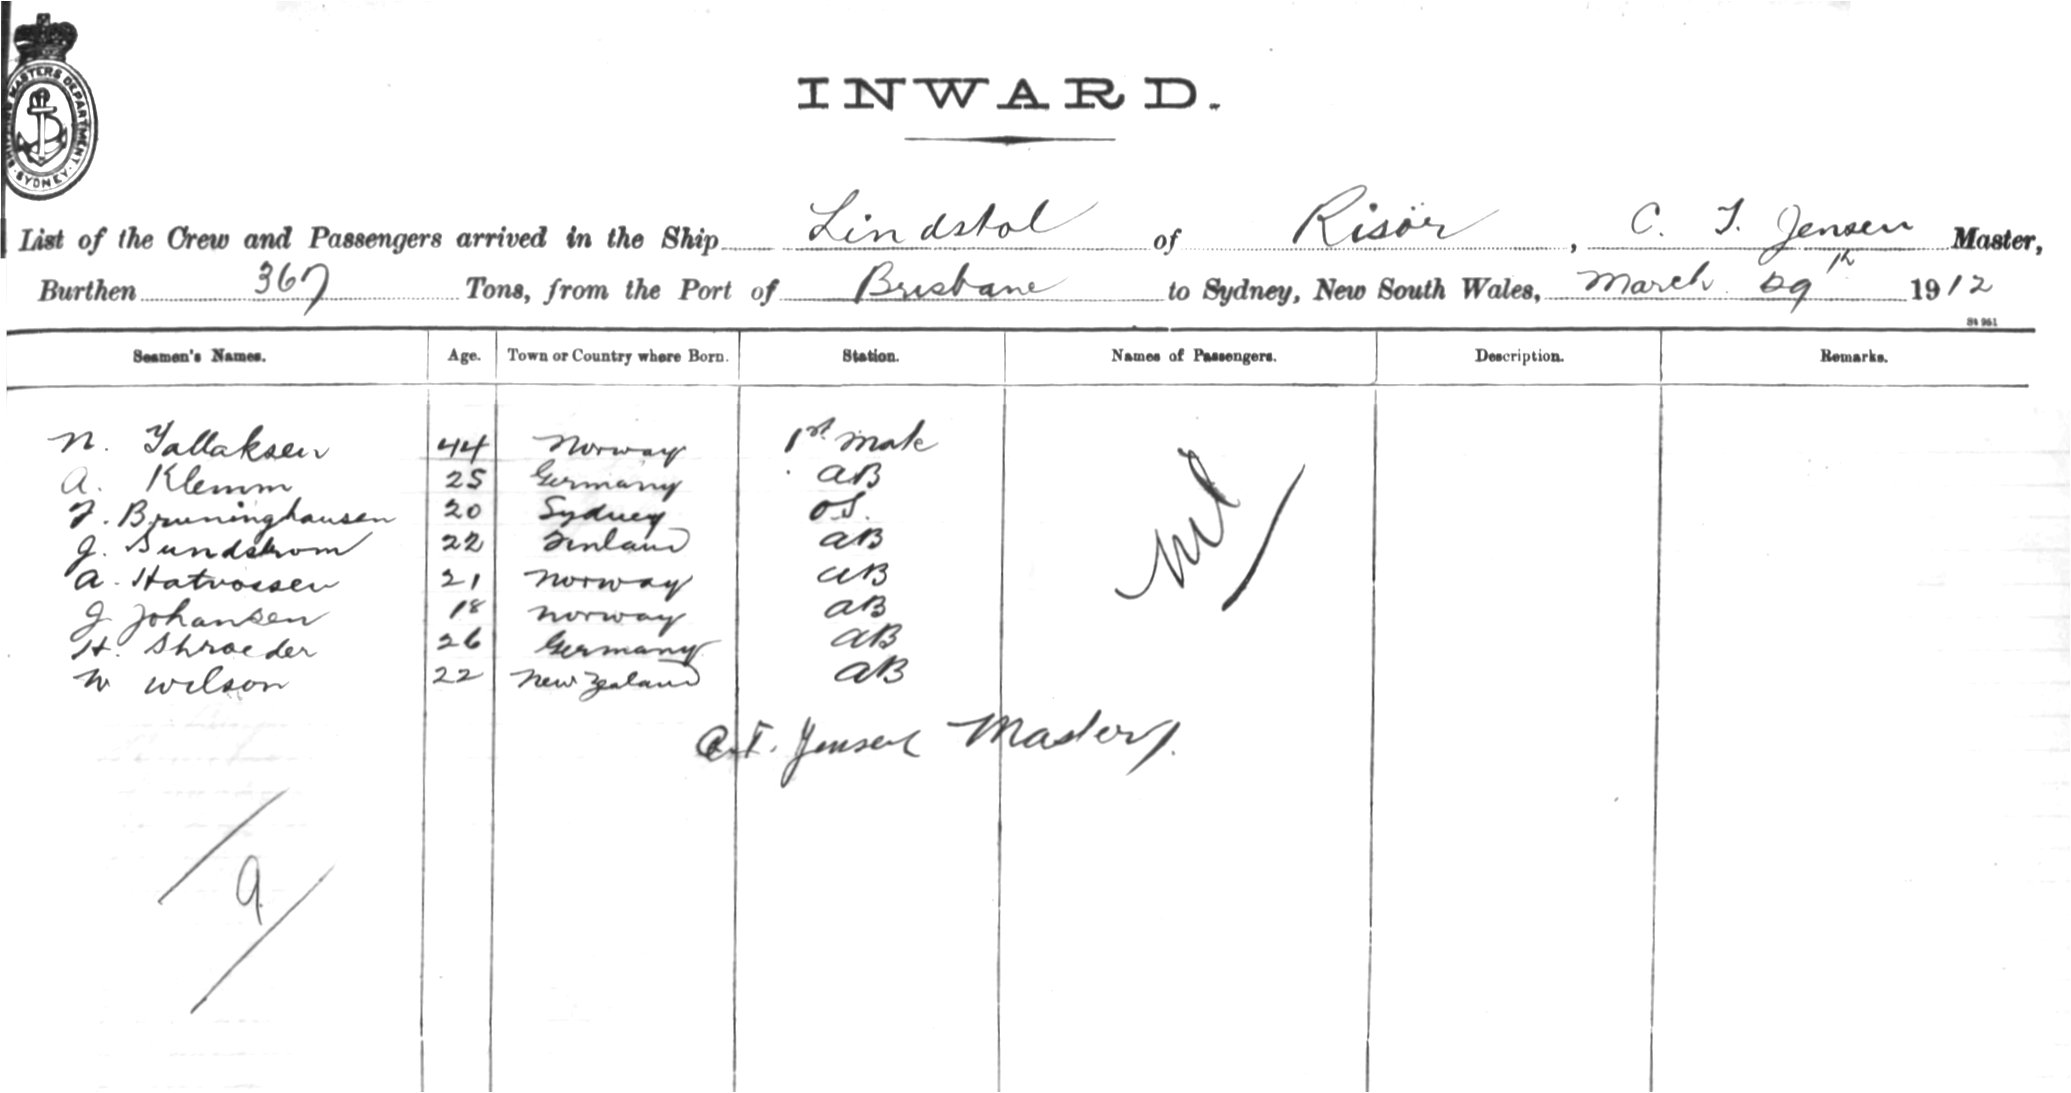 SHIPPING MASTERS DEPARTMENT · SYDNEY ·
INWARD.
List of the Crew and Passengers arrived in the Ship Lindstol of Risör, C. T. Jensen Master,
Burthen 367 Tons, from the Port of Brisbane to Sydney, New South Wales, March 29th 1912
St 961
Seamen's Names. Age. Town or Country where Born. Station. Names of Passengers. Description. Remarks.
N. Tallaksen 44 Norway 1st Mate
A. Klemm 25 Germany AB
F. Bruninghausen 20 Sydney OS.
J. Sundstrom 22 Finland AB
A. Hatvossen 21 Norway AB
J Johansen 18 Norway AB
H. Shroeder 26 Germany AB
W Wilson 22 New Zealand AB
nil
C. T. Jensen Master
9